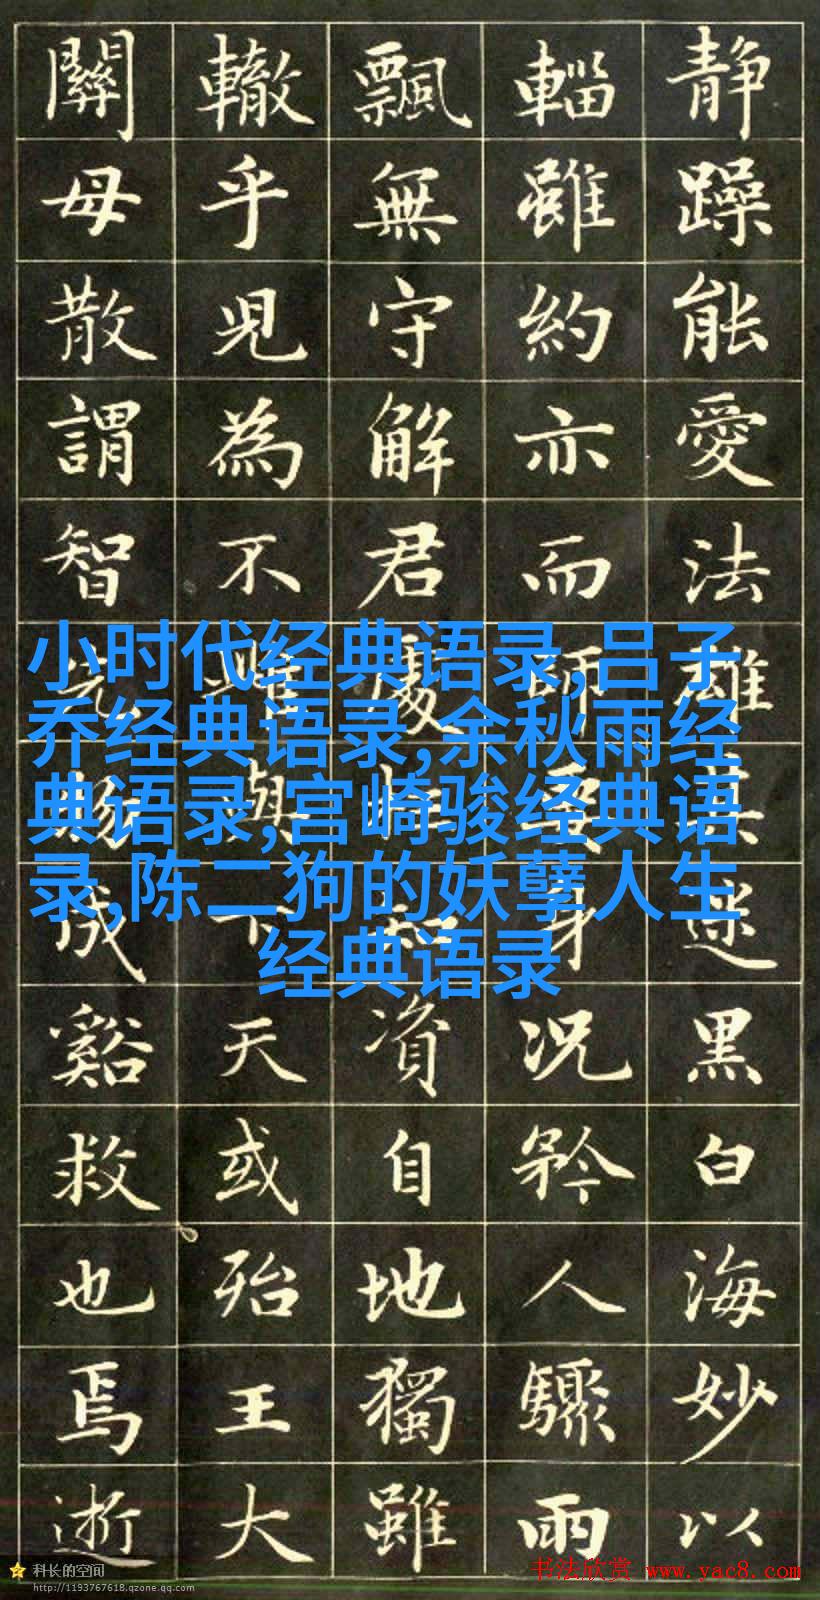 静躁能愛法雄迷黑白海妙以
輜雖約亦而師身况矜人驟雨
飄無守解君處資自地獨雖
轍乎見為不與下天或殆王大
關母散謂智物成谿救也焉逝
小时代经典语录,吕子
乔经典语录,余秋雨经
典语录,宫崎骏经典语
录,陈二狗的妖孽人生
经典语录
科长的空间
http://1193767618.qzone.qq.com
书法欣赏 www.yac8.com